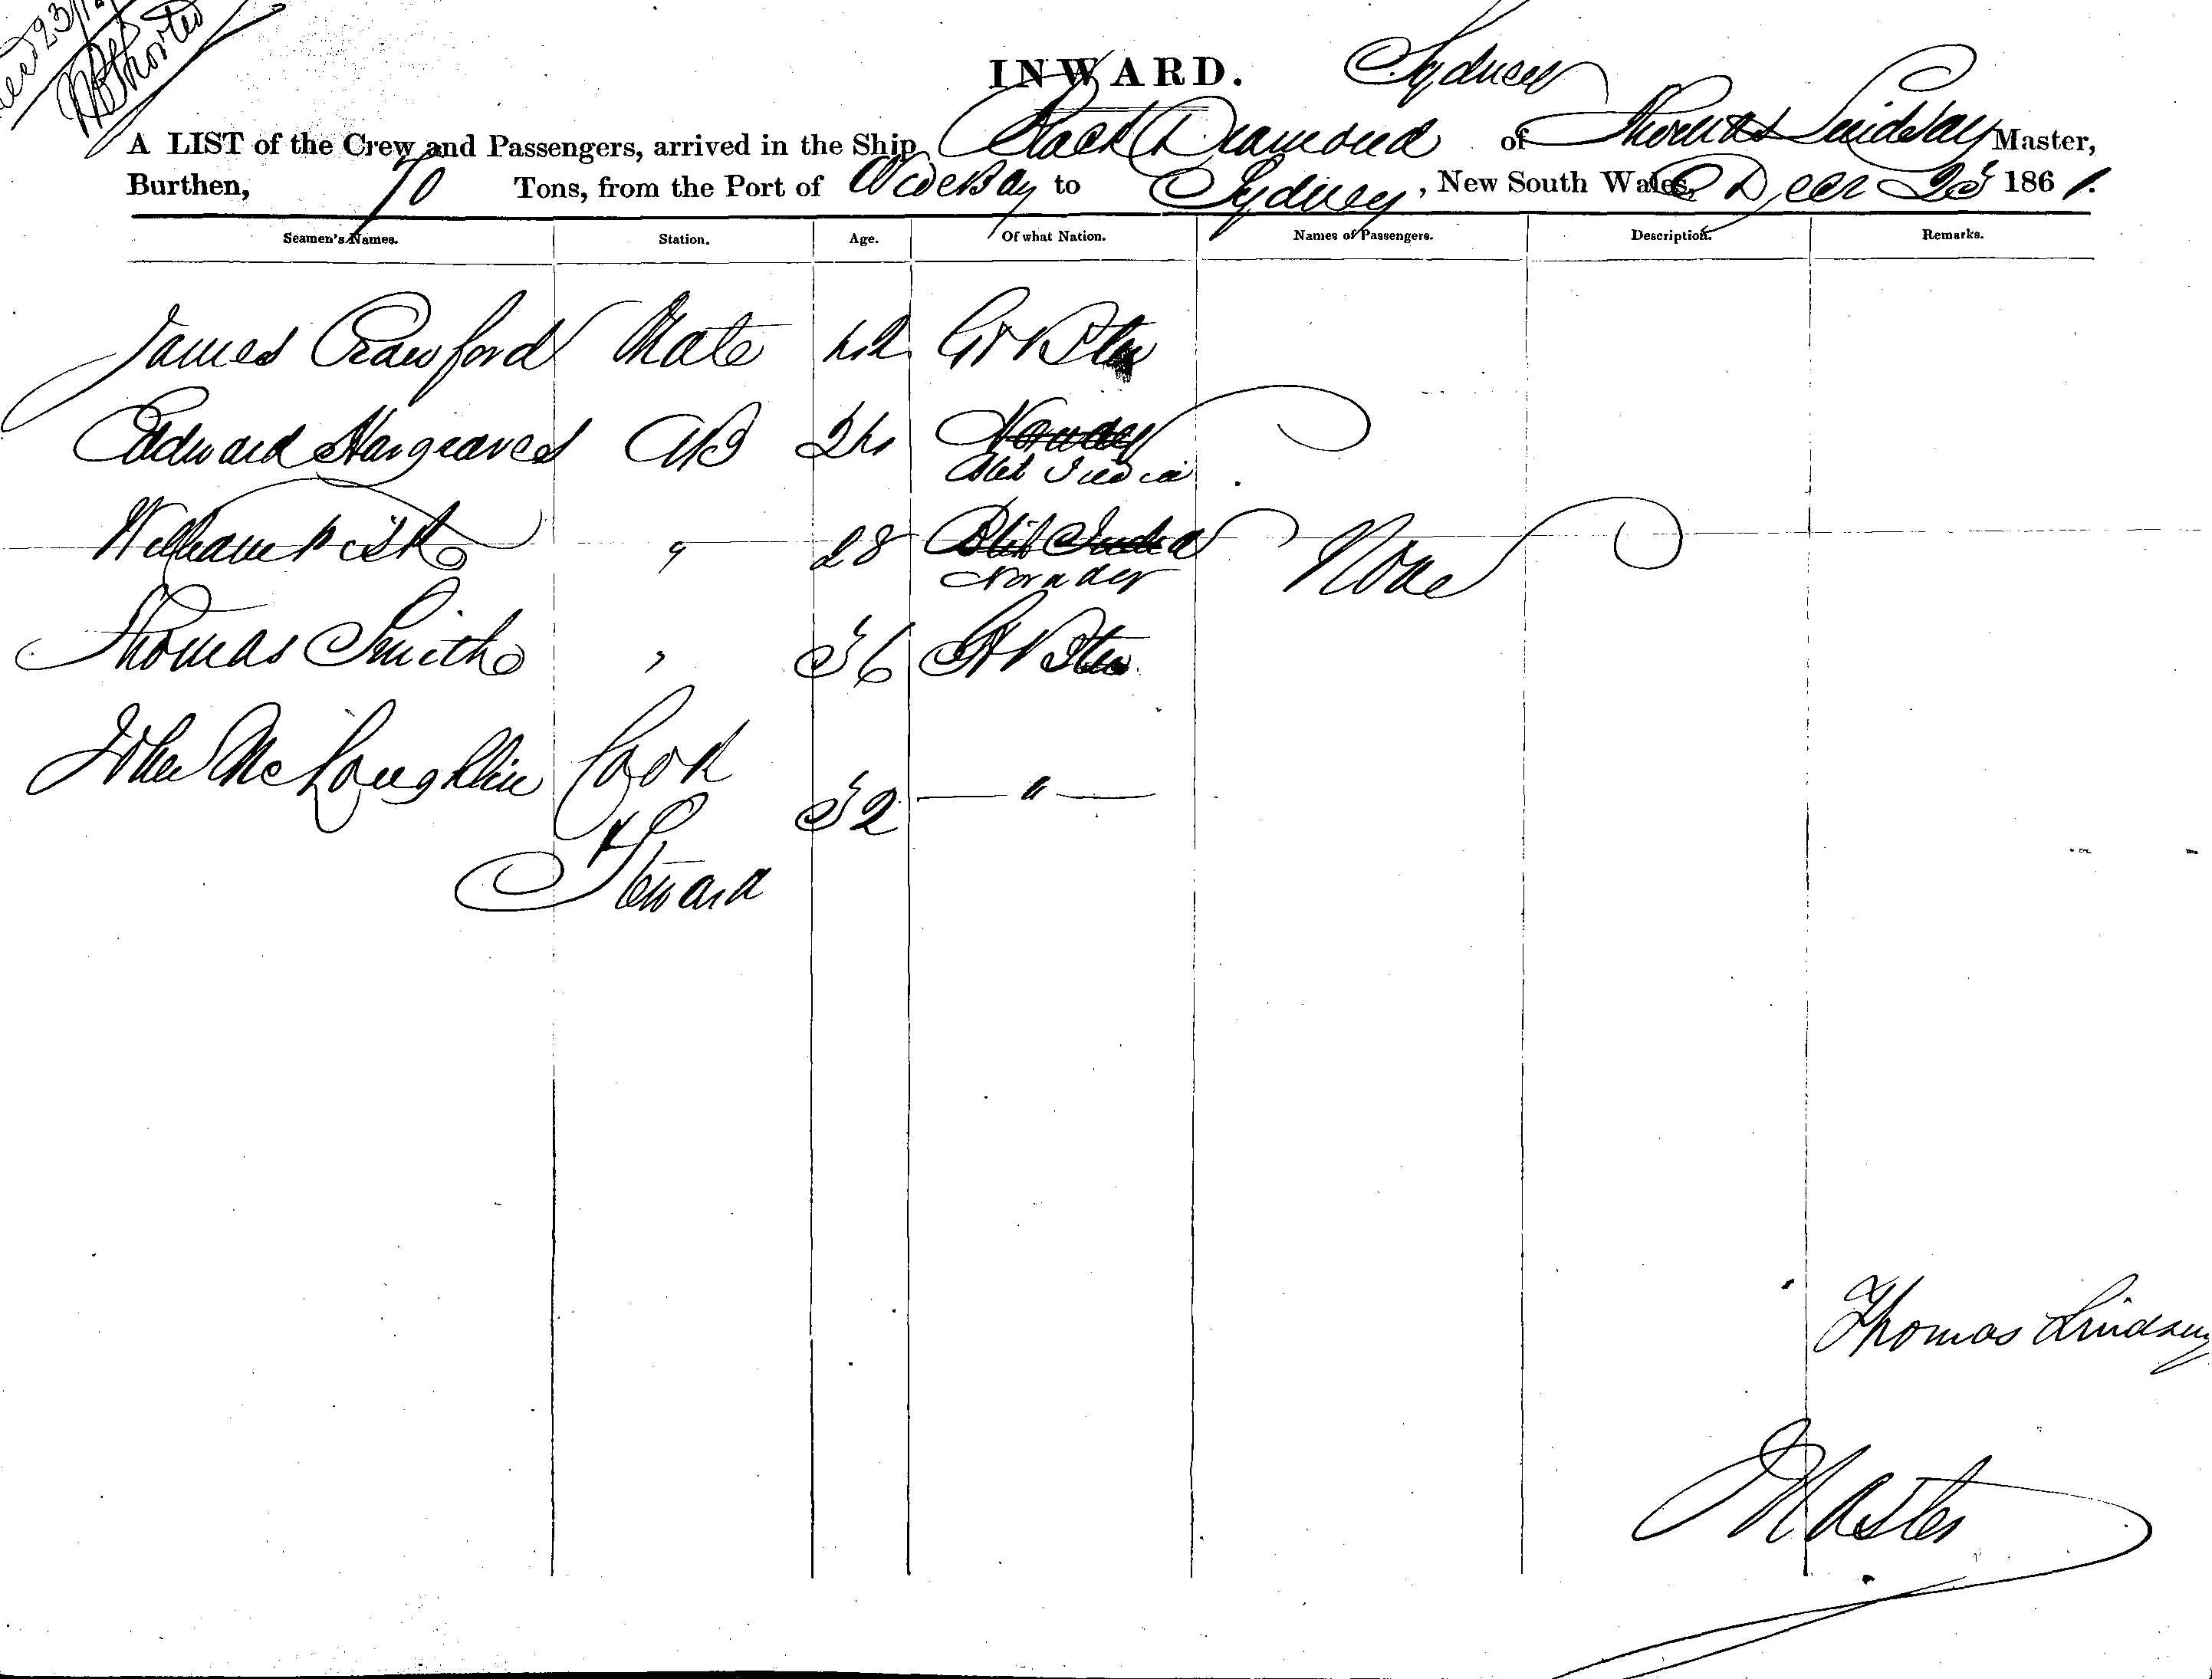 23/12
INWARD.
A LIST of the Crew and Passengers, arrived in the Ship Black Diamond of Sydney Thomas Lindsay Master,
Burthen, 70 Tons, from the Port of Wide Bay to Sydney, New South Wales, Decr 23 1861.
Seamen's Names. Station. Age. Of what Nation. Names of Passengers. Description. Remarks.
James Crawford Mate 42 Gt Btn
Edward Hargreaves AB 24 Norway
India
William 28 India None
Norway
Thomas Smith " 36 Gt Btn
John McLoughlin Cook
32 "
& Steward
Thomas Lindsay
Master